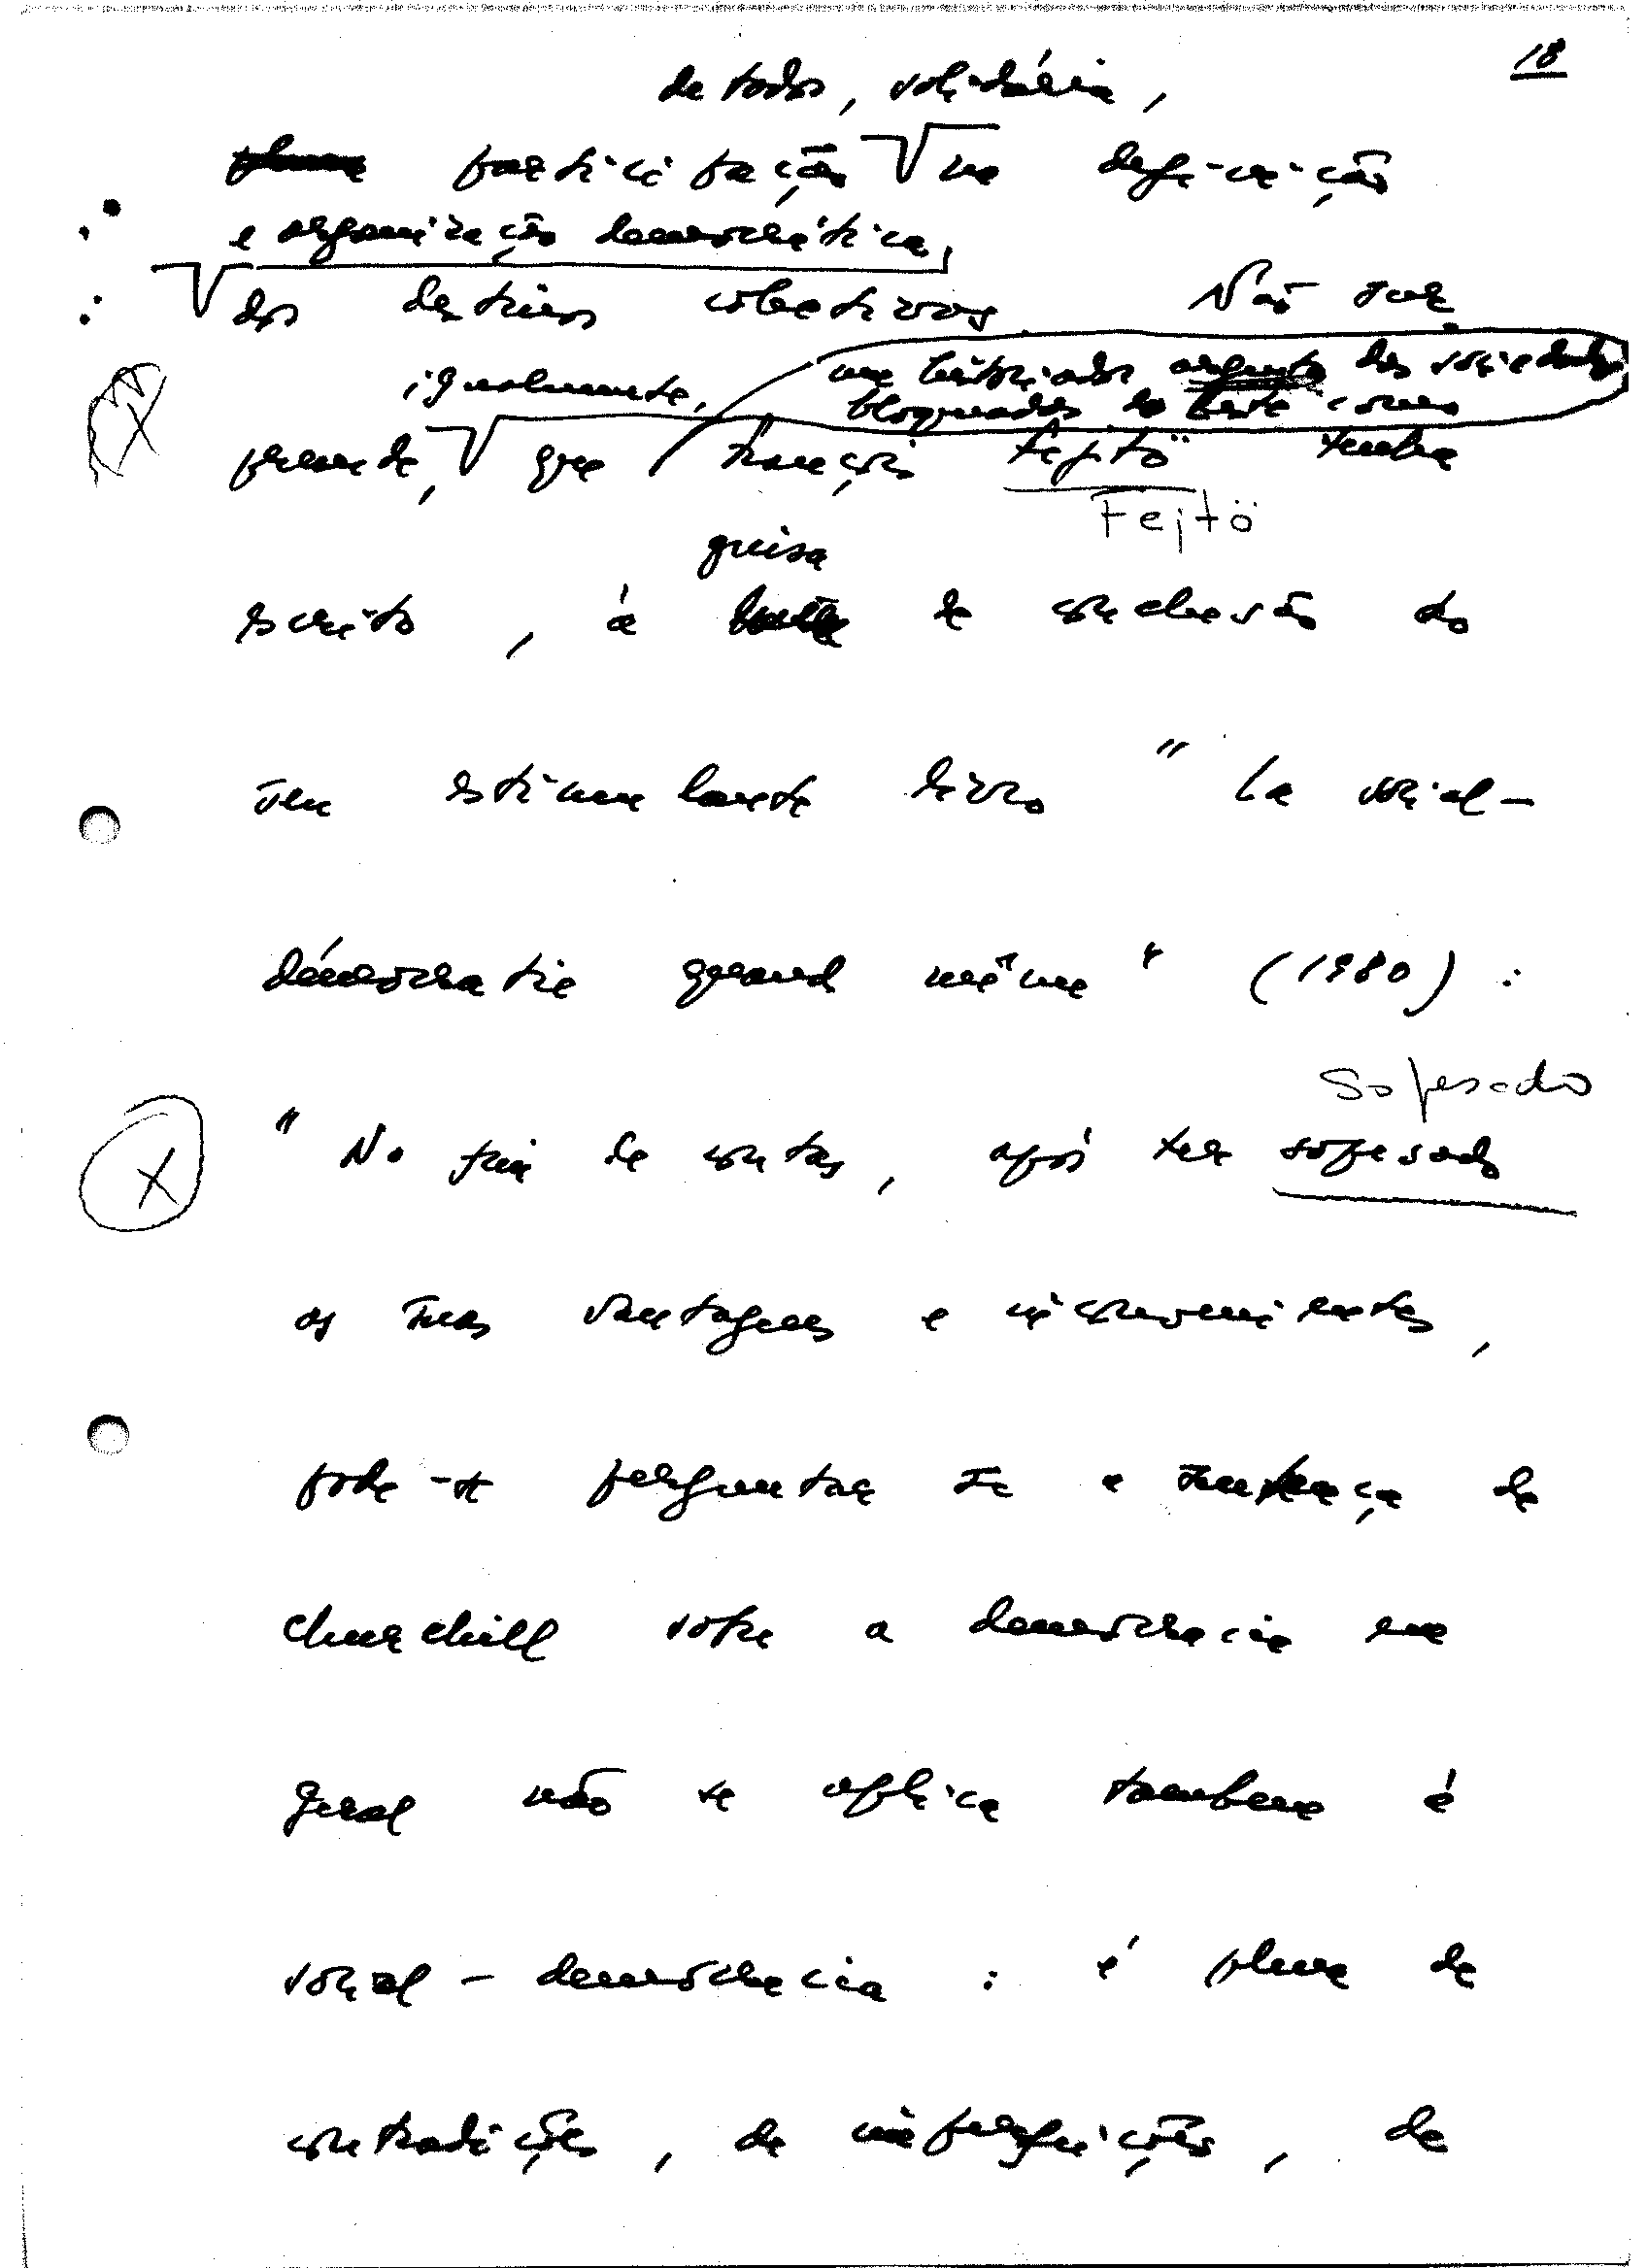 18
de todos, solidária,
participação na definição
e organização democrática,
dos destinos colectivos. Não sur-
igualmente, um historiador arguto das sociedades
bloqueadas do Leste como
preende, que François Fejtö tenha
Fejtö
guisa
escrito, à de conclusão do
seu estimulante livro "La social-
démocratie quand même" (1980):
Sopesado
"No fim de contas, após ter sopesado
as suas vantagens e inconvenientes,
pode-se perguntar se a sentença de
Churchill sobre a democracia em
geral não se aplica também à
social-democracia: é plena de
contradições, de imperfeições, de